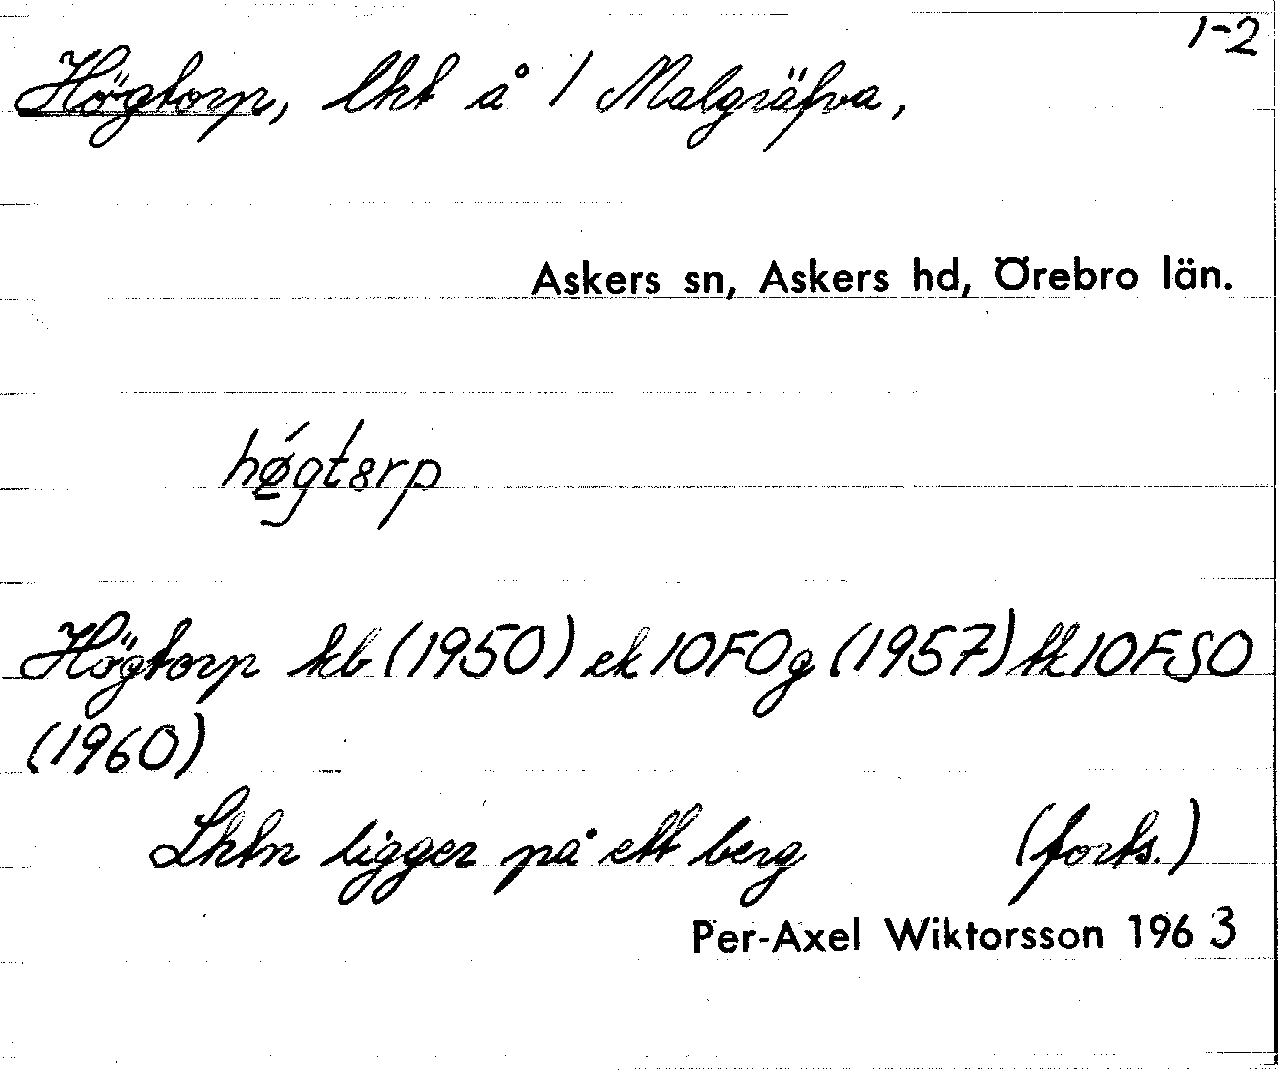 1-2
Högtorp, lht å 1 Malgräfva,
Askers sn, Askers hd, Örebro län.
hǿ̠gtɜrp
Högtorp kb (1950) ek 10FOg (1957) tk 10FSO
(1960)
Lhtn ligger på ett berg (forts.)
Per-Axel Wiktorsson 1963